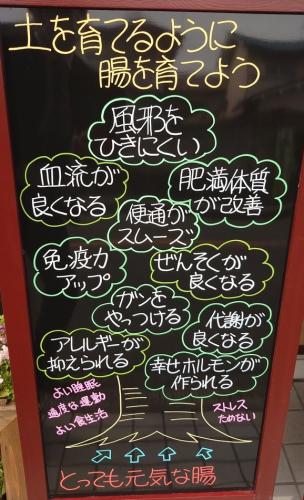 土を育てるように
腸を育てよう
風邪を
ひきにくい
血流が
良くなる
肥満体質
が改善
便通が
スムーズ
免疫力
アップ
ぜんそくが
良くなる
ガンを
やっつける
代謝が
良くなる
アレルギーが
抑えられる
幸せホルモンが
作られる
よい睡眠
適度な運動
よい食生活
ストレス
ためない
とっても元気な腸